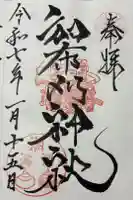 奉拝
和布刈神社
令和七年一月十五日